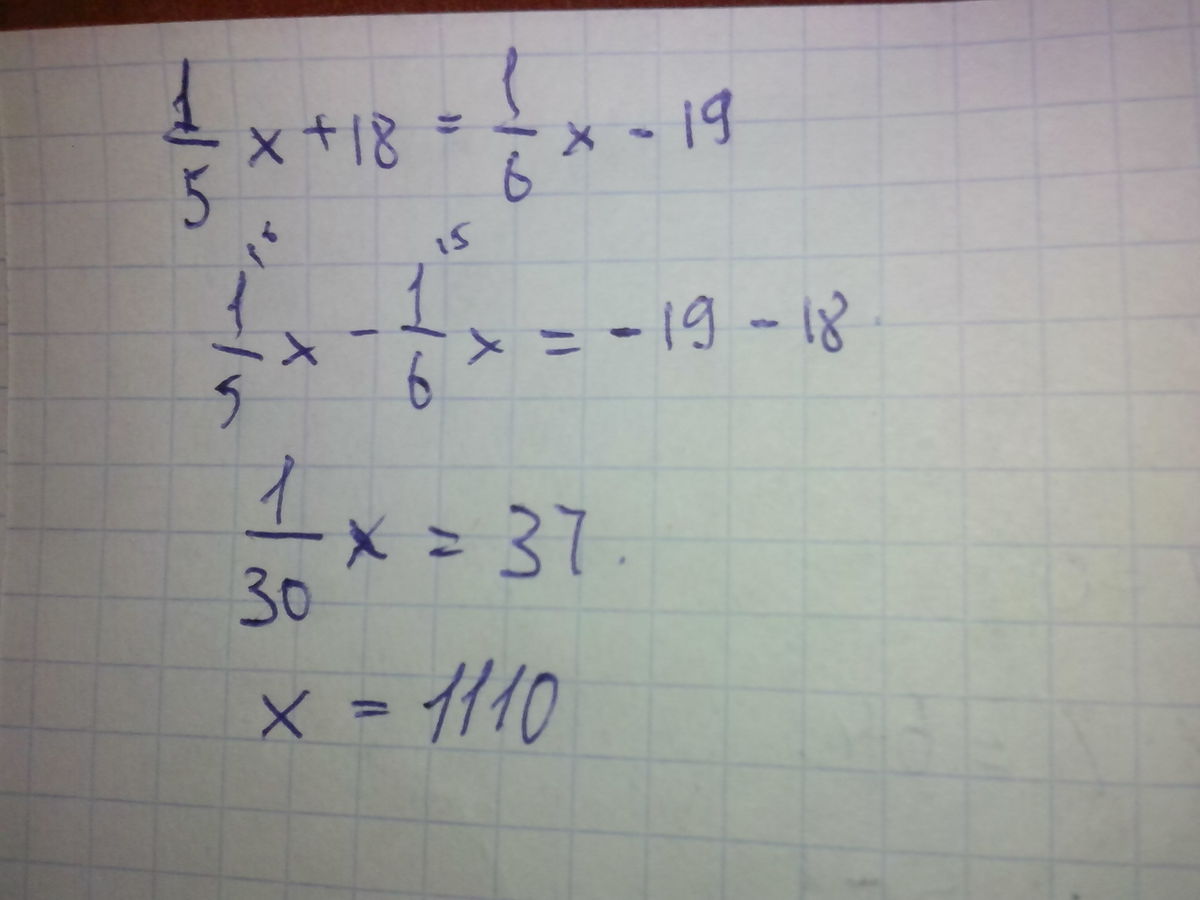 1/5 x + 18 = 1/6 x - 19
1/5 x - 1/6 x = - 19 - 18
1/30 x = 37.
x = 1110